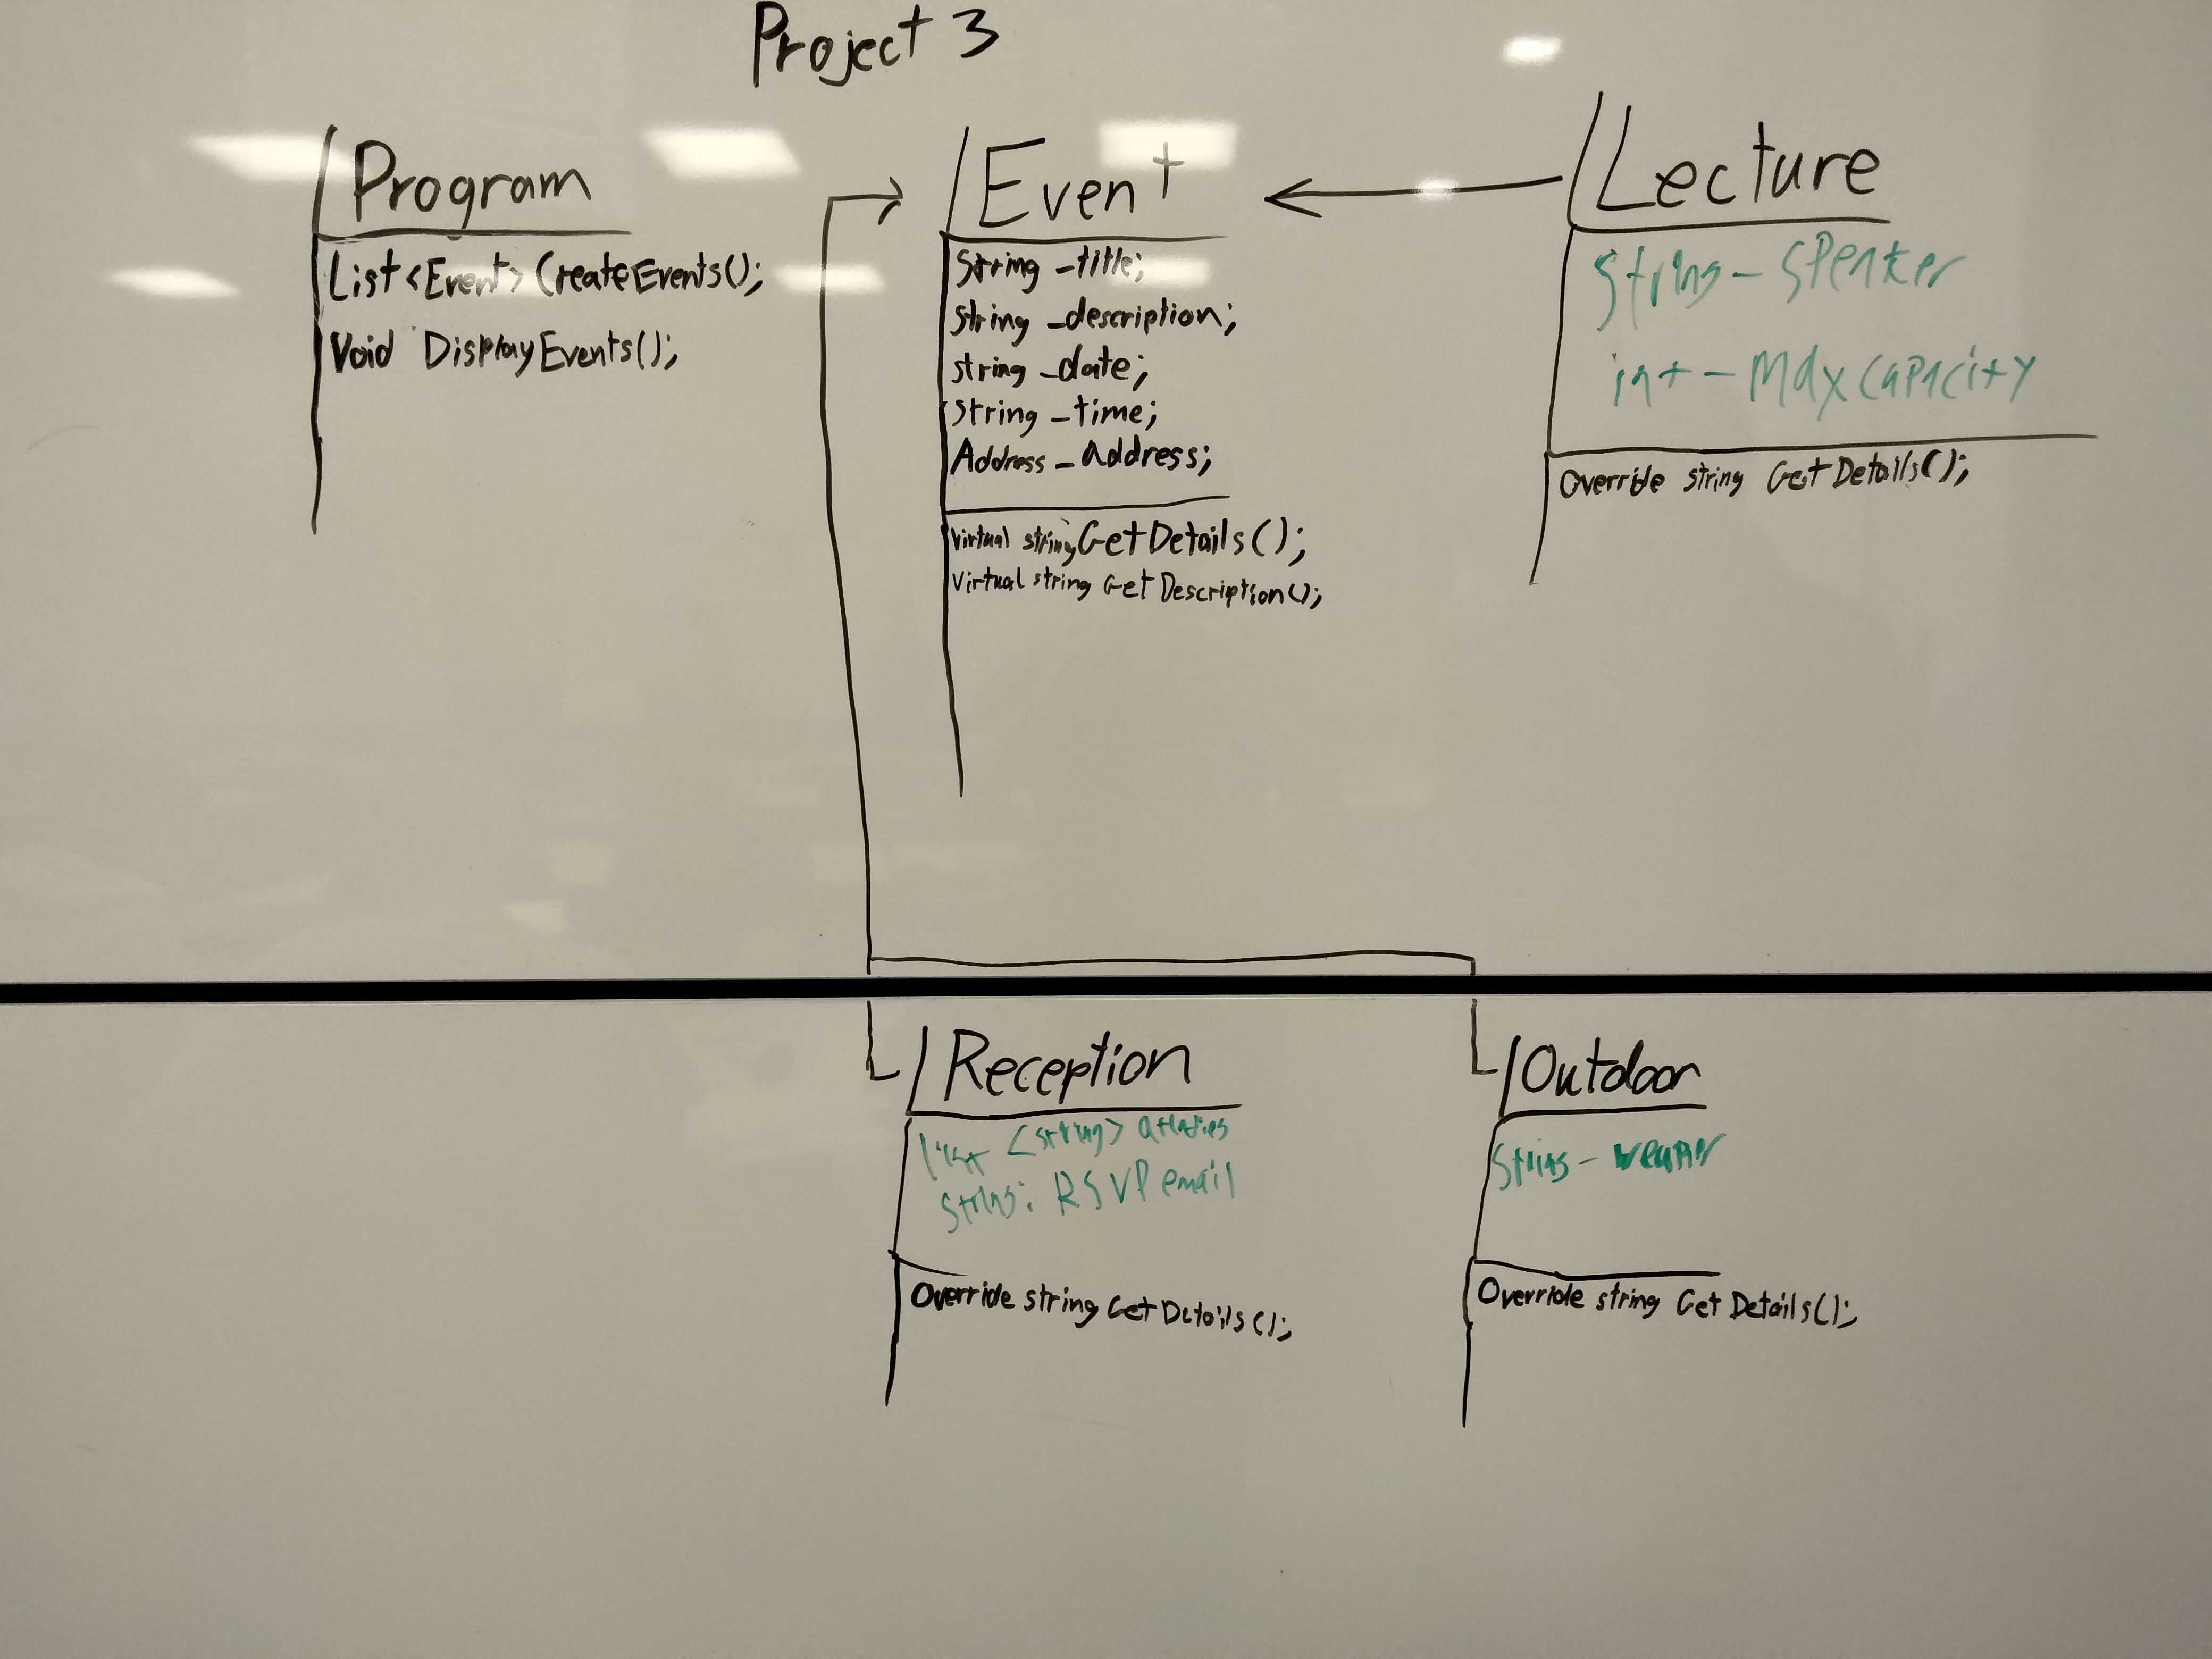 Project 3
Program
List <Event> CreateEvents();
Void DisplayEvents();
Event
String _title;
String _description;
string _date;
String _time;
Address _address;
Virtual string GetDetails();
Virtual string GetDescription();
Lecture
String - Speaker
int - Maxcapacity
Override string GetDetails();
Reception
list <string>
string: RSVP email
Override string GetDetails();
Outdoor
String -
Override string GetDetails();